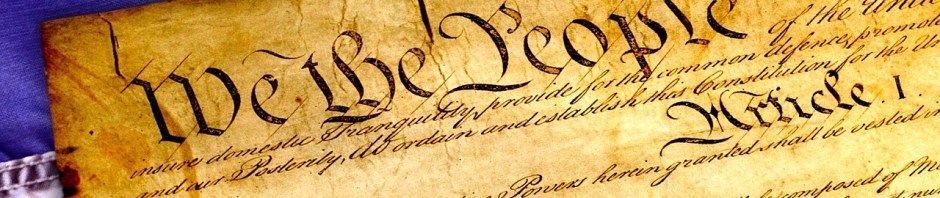 We the People
of the Unit
insure domestic Tranquility, provide for the common defence, promote
and our Posterity, do ordain and establish this Constitution for the Un
Article. I.
Powers herein granted shall be vested in
be composed of Me